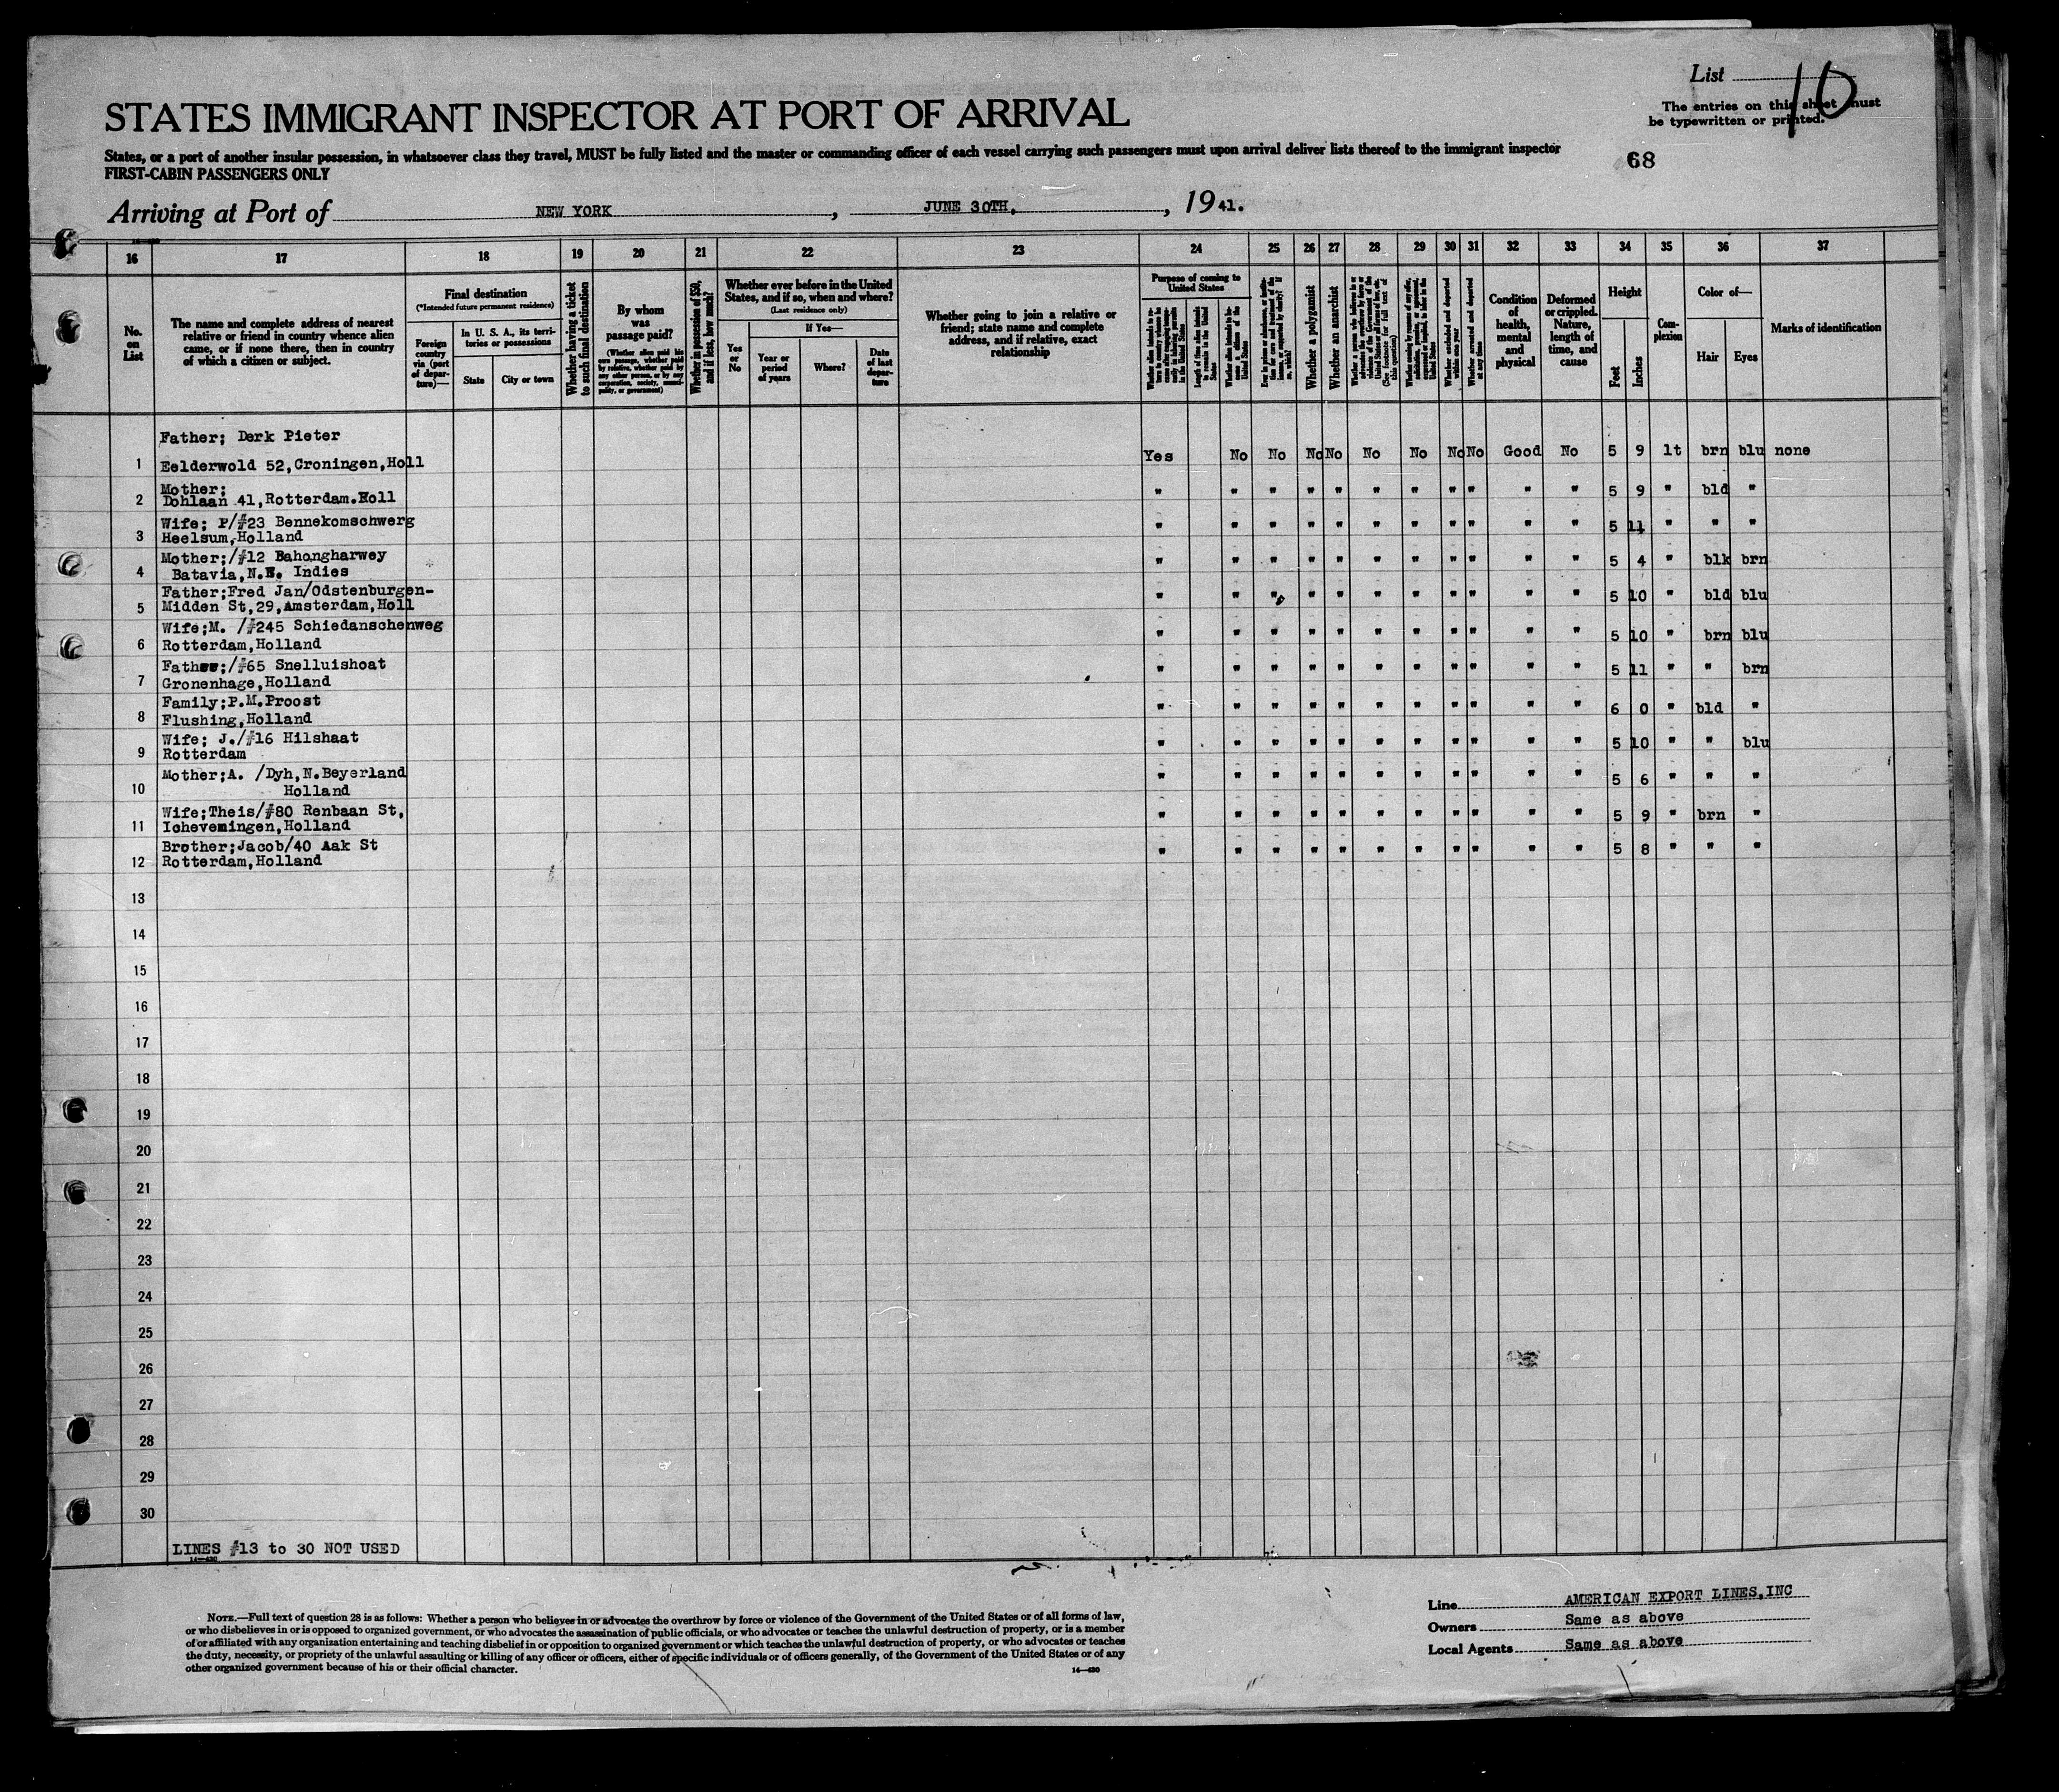 List 10
The entries on this sheet must
be typewritten or printed.
STATES IMMIGRANT INSPECTOR AT PORT OF ARRIVAL
States, or a port of another insular possession, in whatsoever class they travel, MUST be fully listed and the master or commanding officer of each vessel carrying such passengers must upon arrival deliver lists thereof to the immigrant inspector
FIRST-CABIN PASSENGERS ONLY
68
Arriving at Port of NEW YORK, JUNE 30TH, , 1941.
16 17 18 19 20 21 22 23 24 25 26 27 28 29 30 31 32 33 34 35 36 37
No. on List
The name and complete address of nearest
relative or friend in country whence alien
came, or if none there, then in country
of which a citizen or subject.
Final destination
(*Intended future permanent residence)
Foreign country via (port of departure)—
In U. S. A., its territories or possessions
State
City or town
Whether having a ticket to such final destination
By whom was passage paid?
(Whether alien paid his own passage, whether paid by relative, whether paid by any other person, or by any corporation, society, municipality, or government)
Whether in possession of $50, and if less, how much?
Whether ever before in the United States, and if so, when and where?
(Last residence only)
Yes or No
If Yes—
Year or period of years
Where?
Date of last departure
Whether going to join a relative or
friend; state name and complete
address, and if relative, exact
relationship
Purpose of coming to United States
Length of time alien intends to remain in the United States
Whether alien intends to become a citizen of the United States
Whether a polygamist
Whether an anarchist
(See footnote for full text of this question)
Whether arrested and deported at any time
Condition of health, mental and physical
Deformed or crippled. Nature, length of time, and cause
Height
Feet
Inches
Complexion
Color of—
Hair
Eyes
Marks of identification
Father; Derk Pieter
1 Eelderwold 52,Croningen,Holl Yes No No No No No No No No Good No 5 9 lt brn blu none
Mother;
2 Dohlaan 41,Rotterdam.Holl " " " " " " " " " " " 5 9 " bld "
Wife; P/#23 Bennekomschwerg
3 Heelsum,Holland " " " " " " " " " " " 5 11 " " "
Mother;/#12 Bahongharwey
4 Batavia,N.E. Indies " " " " " " " " " " " 5 4 " blk brn
Father;Fred Jan/Odstenburgen-
5 Midden St,29,Amsterdam,Holl " " " " " " " " " " " 5 10 " bld blu
Wife;M. /#245 Schiedanschenweg
6 Rotterdam,Holland " " " " " " " " " " " 5 10 " brn blu
Father:/#65 Snelluishoat
7 Gronenhage,Holland " " " " " " " " " " " 5 11 " " brn
Family;P.M.Proost
8 Flushing,Holland " " " " " " " " " " " 6 0 " bld "
Wife; J./#16 Hilshaat
9 Rotterdam " " " " " " " " " " " 5 10 " " blu
Mother;A. /Dyh,N.Beyerland
10 Holland " " " " " " " " " " " 5 6 " " "
Wife;Theis/#80 Renbaan St,
11 Ichevemingen,Holland " " " " " " " " " " " 5 9 " brn "
Brother;Jacob/40 Aak St
12 Rotterdam,Holland " " " " " " " " " " " 5 8 " " "
13
14
15
16
17
18
19
20
21
22
23
24
25
26
27
28
29
30
LINES #13 to 30 NOT USED
14—430
NOTE.—Full text of question 28 is as follows: Whether a person who believes in or advocates the overthrow by force or violence of the Government of the United States or of all forms of law,
or who disbelieves in or is opposed to organized government, or who advocates the assassination of public officials, or who advocates or teaches the unlawful destruction of property, or is a member
of or affiliated with any organization entertaining and teaching disbelief in or opposition to organized government or which teaches the unlawful destruction of property, or who advocates or teaches
the duty, necessity, or propriety of the unlawful assaulting or killing of any officer or officers, either of specific individuals or of officers generally, of the Government of the United States or of any
other organized government because of his or their official character.
14—430
Line AMERICAN EXPORT LINES,INC
Owners Same as above
Local Agents Same as above